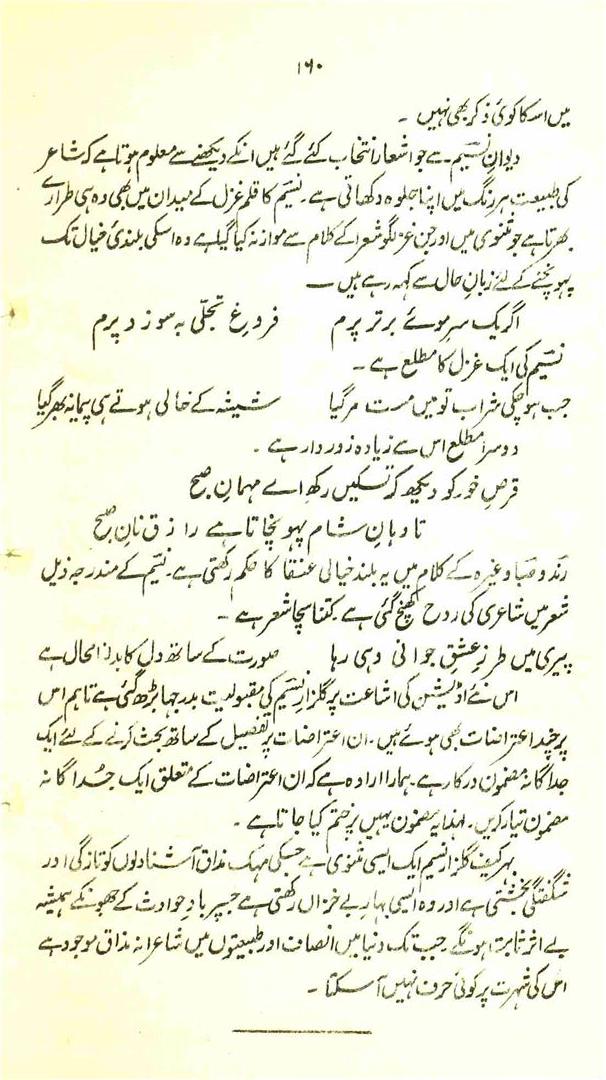 ۱۶۰
میں اسکا کوئی ذکر بھی نہیں ۔
دیوانِ نسیم سے جو اشعار انتخاب کئے گئے ہیں انکے دیکھنے سے معلوم ہوتا ہے کہ شاعر
کی طبیعت ہر رنگ میں اپنا جلوہ دکھاتی ہے۔ نسیم کا قلم غزل کے میدان میں بھی وہ ہی طرارے
بھرتا ہے جو مثنوی میں اور جن غزلگو شعرا کے کلام سے موازنہ کیا گیا ہے وہ اسکی بلندئ خیال تک
پہونچنے کے لئے زبانِ حال سے کہہ رہے ہیں ــــ
اگر یک سرِ موئے برتر پرم فروغِ تجلّی بسوزد پرم
نسیم کی ایک غزل کا مطلع ہے ۔
جب ہو چکی شراب تو میں مست مر گیا شیشہ کے خالی ہوتے ہی پیمانہ بھر گیا
دوسرا مطلع اس سے زیادہ زوردار ہے ۔
قرصِ خور کو دیکھ کر تسکیں رکھ اے مہمانِ صبح
تا دہانِ شام پہونچاتا ہے رازق نانِ صبح
رند و صبا وغیرہ کے کلام میں یہ بلند خیالی عنقا کا حکم رکھتی ہے۔ نسیم کے مندرجہ ذیل
شعر میں شاعری کی روح کھنچ گئی ہے کتنا سچا شعر ہے ۔
پیری میں طرزِ عشقِ جوانی وہی رہا صورت کے ساتھ دل کا بدلنا محال ہے
اس نئے اڈیشن کی اشاعت پر گلزارِ نسیم کی مقبولیت بدرجہا بڑھ گئی ہے تاہم اس
پر چند اعتراضات بھی ہوئے ہیں۔ ان اعتراضات پر تفصیل کے ساتھ بحث کرنے کے لئے ایک
جداگانہ مضمون درکار ہے۔ ہمارا ارادہ ہے کہ ان اعتراضات کے متعلق ایک جُداگانہ
مضمون تیار کریں۔ لہذا یہ مضمون یہیں پر ختم کیا جاتا ہے ۔
بہر کیف گلزارِ نسیم ایک ایسی مثنوی ہے جسکی مہک مذاق آشنا دلوں کو تازگی اور
شگفتگی بخشتی ہے اور وہ ایسی بہارِ بے خزاں رکھتی ہے جسپر بادِ حوادث کے جھونکے ہمیشہ
بے اثر ثابت ہونگے۔ جب تک دنیا میں انصاف اور طبیعتوں میں شاعرانہ مذاق موجود ہے
اس کی شہرت پر کوئی حرف نہیں آ سکتا ۔